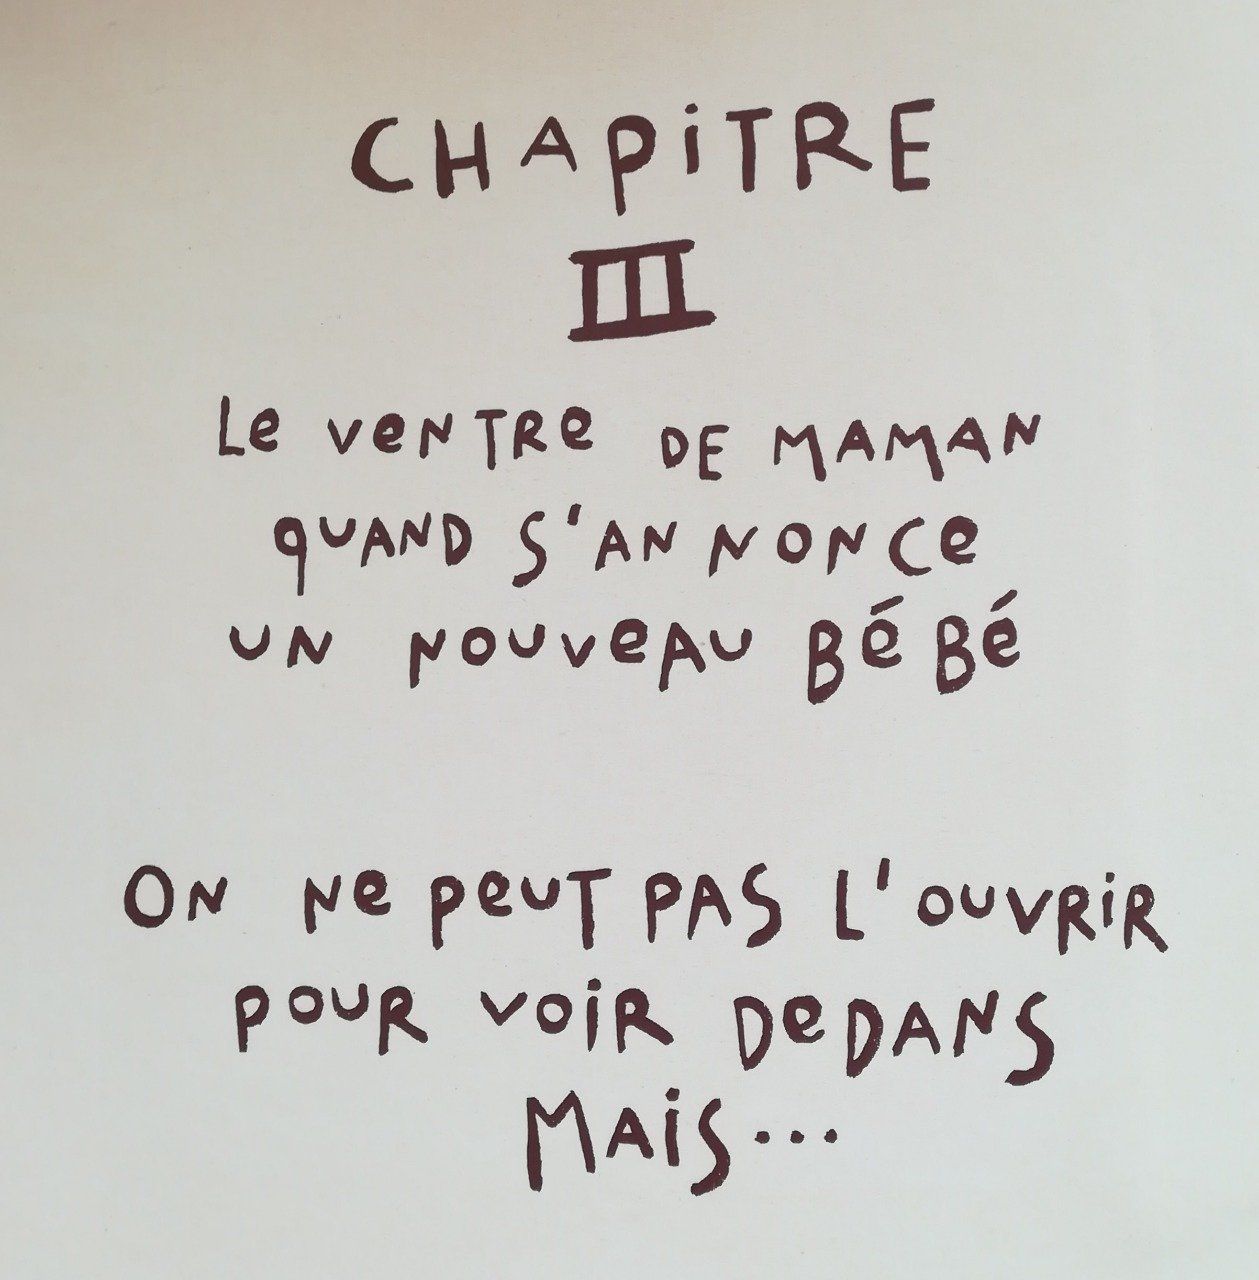 CHAPITRE
III
Le ventre de maman
quand s'annonce
un nouveau bébé
On ne peut pas l'ouvrir
pour voir dedans
Mais...